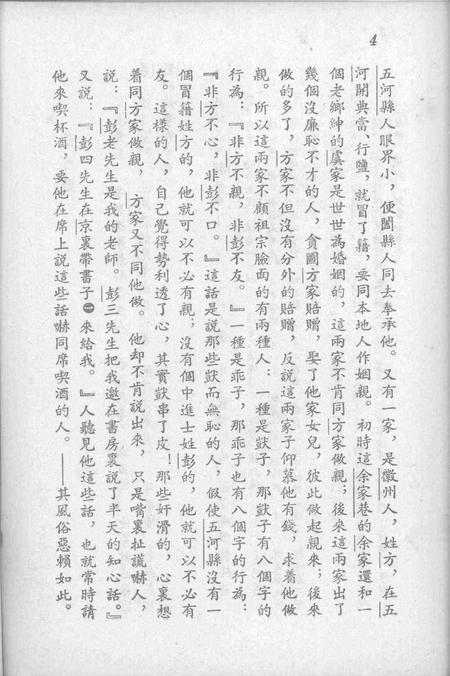 4
五河縣人眼界小，便闔縣人同去奉承他。又有一家，是徽州人，姓方，在五
河開典當、行鹽，就冒了籍，要同本地人作姻親。初時這余家巷的余家還和一
個老鄉紳的虞家是世世爲婚姻的，這兩家不肯同方家做親；後來這兩家出了
幾個沒廉恥不才的人，貪圖方家賠贈，娶了他家女兒，彼此做起親來；後來
做的多了，方家不但沒有分外的賠贈，反說這兩家子仰慕他有錢，求着他做
親。所以這兩家不顧祖宗臉面的有兩種人：一種是獃子，那獃子有八個字的
行爲：『非方不親，非彭不友。』一種是乖子，那乖子也有八個字的行爲：
『非方不心，非彭不口。』這話是說那些獃而無恥的人，假使五河縣沒有一
個冒籍姓方的，他就可以不必有親；沒有個中進士姓彭的，他就可以不必有
友。這樣的人，自己覺得勢利透了心，其實獃串了皮！那些奸滑的，心裏想
着同方家做親，方家又不同他做。他却不肯說出來，只是嘴裏扯謊嚇人，
說：『彭老先生是我的老師。彭三先生把我邀在書房裏說了半天的知心話。』
又說：『彭四先生在京裏帶書子㊀來給我。』人聽見他這些話，也就常時請
他來喫杯酒，要他在席上說這些話嚇同席喫酒的人。——其風俗惡賴如此。